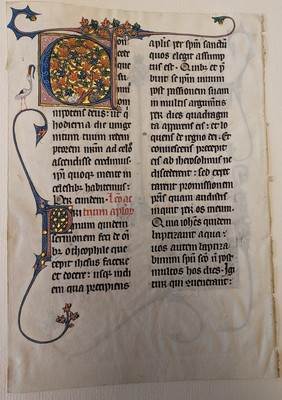 Con
cede
quesu
mus
om
nipotens deus: ut qui
hodierna die unige
nitum tuum redem
ptorem nrm ad celos
ascendisse credimus:
ipi quoque mente in
celestib; habitemus.
Per eundem. Lco ac
Pri tuum aplor
mum quidem
sermonem feci de oi
b; o theophile que
cepit ihesus facere
et docere: usq; in di
em qua precipiens
aplis per spm sanctu
quos elegit assump
tus est. Quib; et p
buit se ipm uiuum
post passionem suam
in multis argumtis
per dies quadragin
ta apparens eis: et lo
quens de regno dei. Et
conuescens precepit
eis ab iherosolimis ne
discederent: sed expec
tarent promissionem
pris quam audistis
inquit per os meum.
Quia iohes quidem
baptizauit aqua:
uos autem baptiza
bimini spu sco n post
multos hos dies. Igi
tur qui conuenerant: